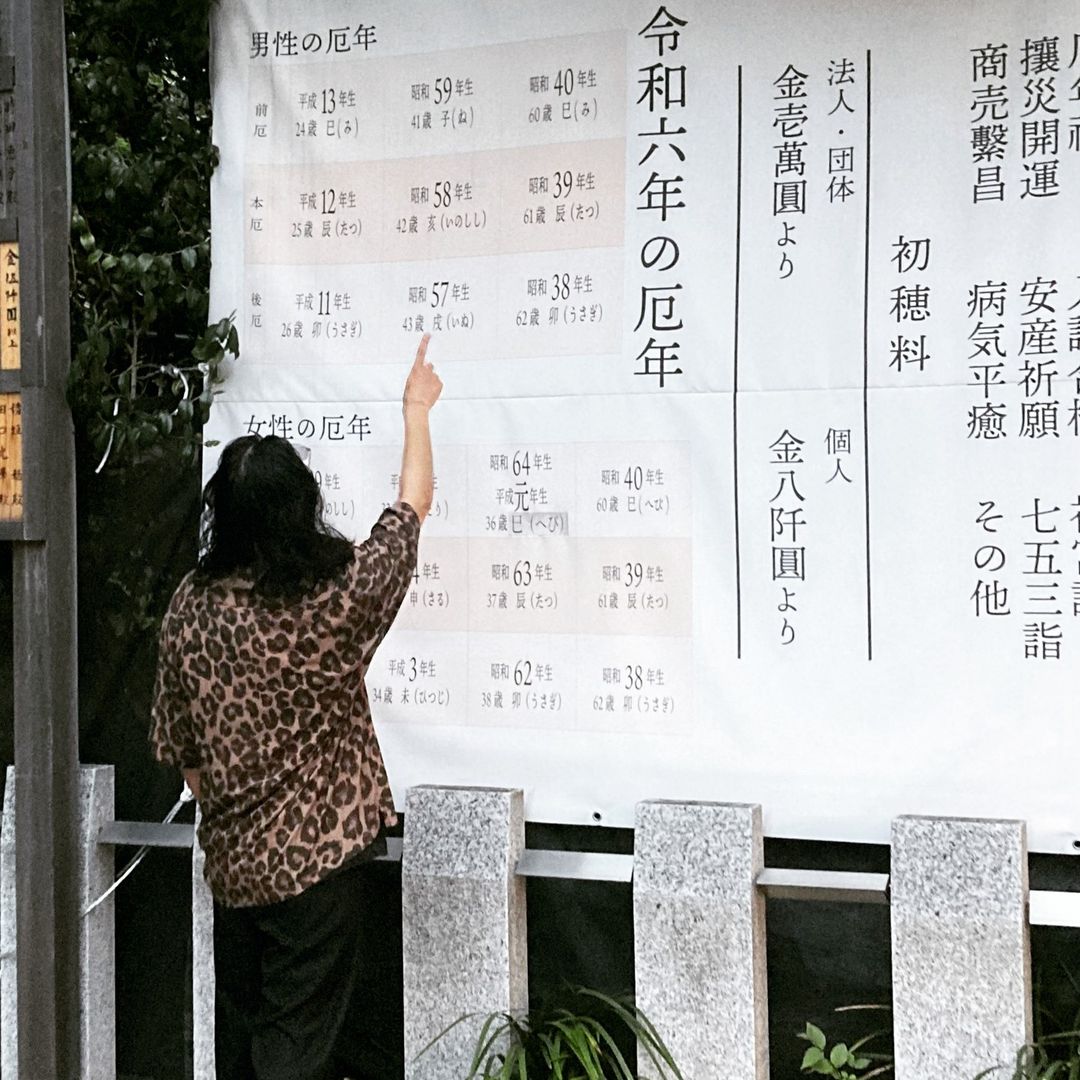 商売繫昌 病気平癒 その他
攘災開運 安産祈願 七五三詣
初穂料
法人・団体 金壱萬圓より
個人 金八阡圓より
令和六年の厄年
男性の厄年
前厄
平成13年生 昭和59年生 昭和40年生
24歳 巳(み) 41歳 子(ね) 60歳 巳(み)
本厄
平成12年生 昭和58年生 昭和39年生
25歳 辰(たつ) 42歳 亥(いのしし) 61歳 辰(たつ)
後厄
平成11年生 昭和57年生 昭和38年生
26歳 卯(うさぎ) 43歳 戌(いぬ) 62歳 卯(うさぎ)
女性の厄年
昭和64年生
平成元年生 昭和40年生
36歳 巳(へび) 60歳 巳(へび)
年生 昭和63年生 昭和39年生
申(さる) 37歳 辰(たつ) 61歳 辰(たつ)
平成3年生 昭和62年生 昭和38年生
34歳 未(ひつじ) 38歳 卯(うさぎ) 62歳 卯(うさぎ)